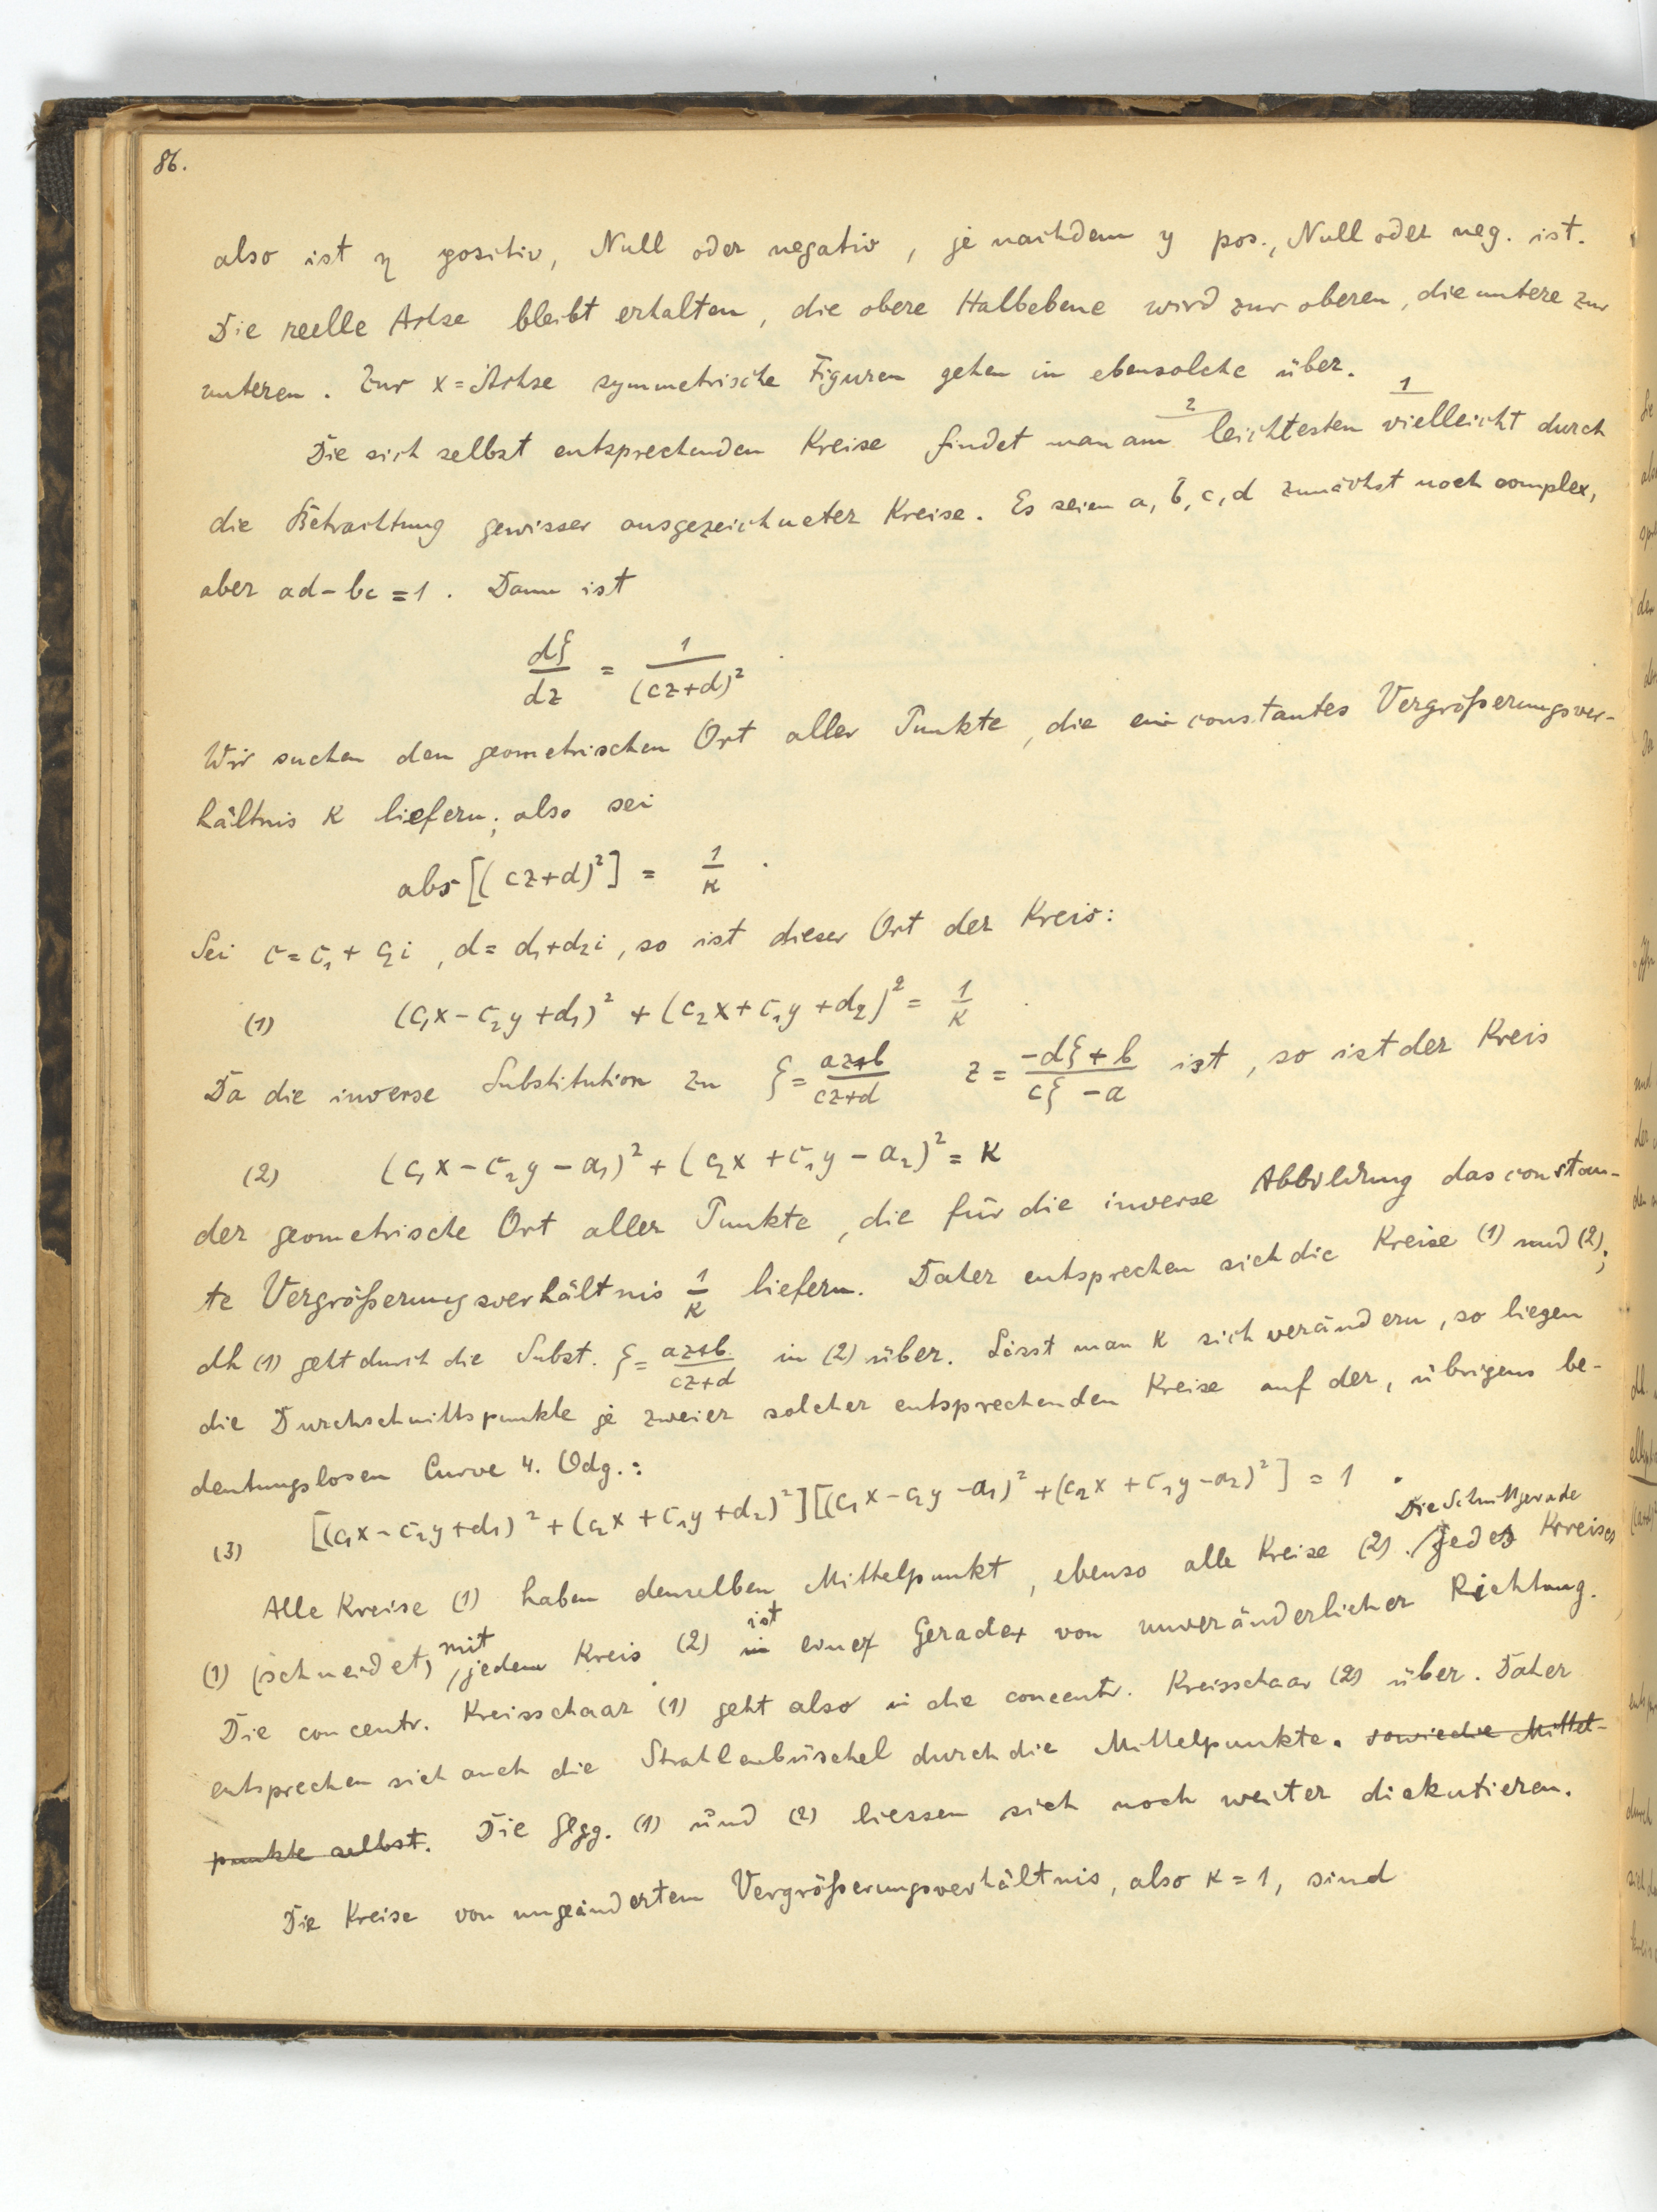 86.
also ist η positiv, Null oder negativ, je nachdem y pos., Null oder neg. ist.
Die reelle Achse bleibt erhalten, die obere Halbebene wird zur oberen, die untere zur
unteren. Zur x=Achse symmetrische Figuren gehen in ebensolche über.
Die sich selbst entsprechenden Kreise findet man am leichtesten vielleicht durch
2 1
die Betrachtung gewisser ausgezeichneter Kreise. Es seien a, b, c, d zunächst noch complex,
aber ad-bc=1. Dann ist
dζ/dz = 1/(cz+d)²
Wir suchen den geometrischen Ort aller Punkte, die ein constantes Vergrößerungsver-
hältnis K liefern; also sei
abs[(cz+d)²] = 1/K.
Sei c=c₁+c₂i, d=d₁+d₂i, so ist dieser Ort der Kreis:
(1) (c₁x-c₂y+d₁)² + (c₂x+c₁y+d₂)² = 1/K.
Da die inverse Substitution zu ζ=(az+b)/(cz+d) z=(-dζ+b)/(cζ-a) ist, so ist der Kreis
(2) (c₁x-c₂y-a₁)² + (c₂x+c₁y-a₂)² = K
der geometrische Ort aller Punkte, die für die inverse Abbildung das constan-
te Vergrößerungsverhältnis 1/K liefern. Daher entsprechen sich die Kreise (1) und (2);
dh (1) geht durch die Subst. ζ=(az+b)/(cz+d) in (2) über. Lässt man K sich verändern, so liegen
die Durchschnittspunkte je zweier solcher entsprechenden Kreise auf der, übrigens be-
deutungslosen Curve 4. Odg.:
(3) [(c₁x-c₂y+d₁)²+(c₂x+c₁y+d₂)²][(c₁x-c₂y-a₁)²+(c₂x+c₁y-a₂)²] = 1.
Die Schnittgerade
Alle Kreise (1) haben denselben Mittelpunkt, ebenso alle Kreise (2). jedes Kreises
(1) (schneidet) mit jedem Kreis (2) in ist einer Gerade von unveränderlicher Richtung.
Die concentr. Kreisschaar (1) geht also in die concentr. Kreisschaar (2) über. Daher
entsprechen sich auch die Strahlenbüschel durch die Mittelpunkte. sowie die Mittel-
punkte selbst. Die Glgg. (1) und (2) liessen sich noch weiter diskutieren.
Die Kreise von ungeändertem Vergrößerungsverhältnis, also K=1, sind